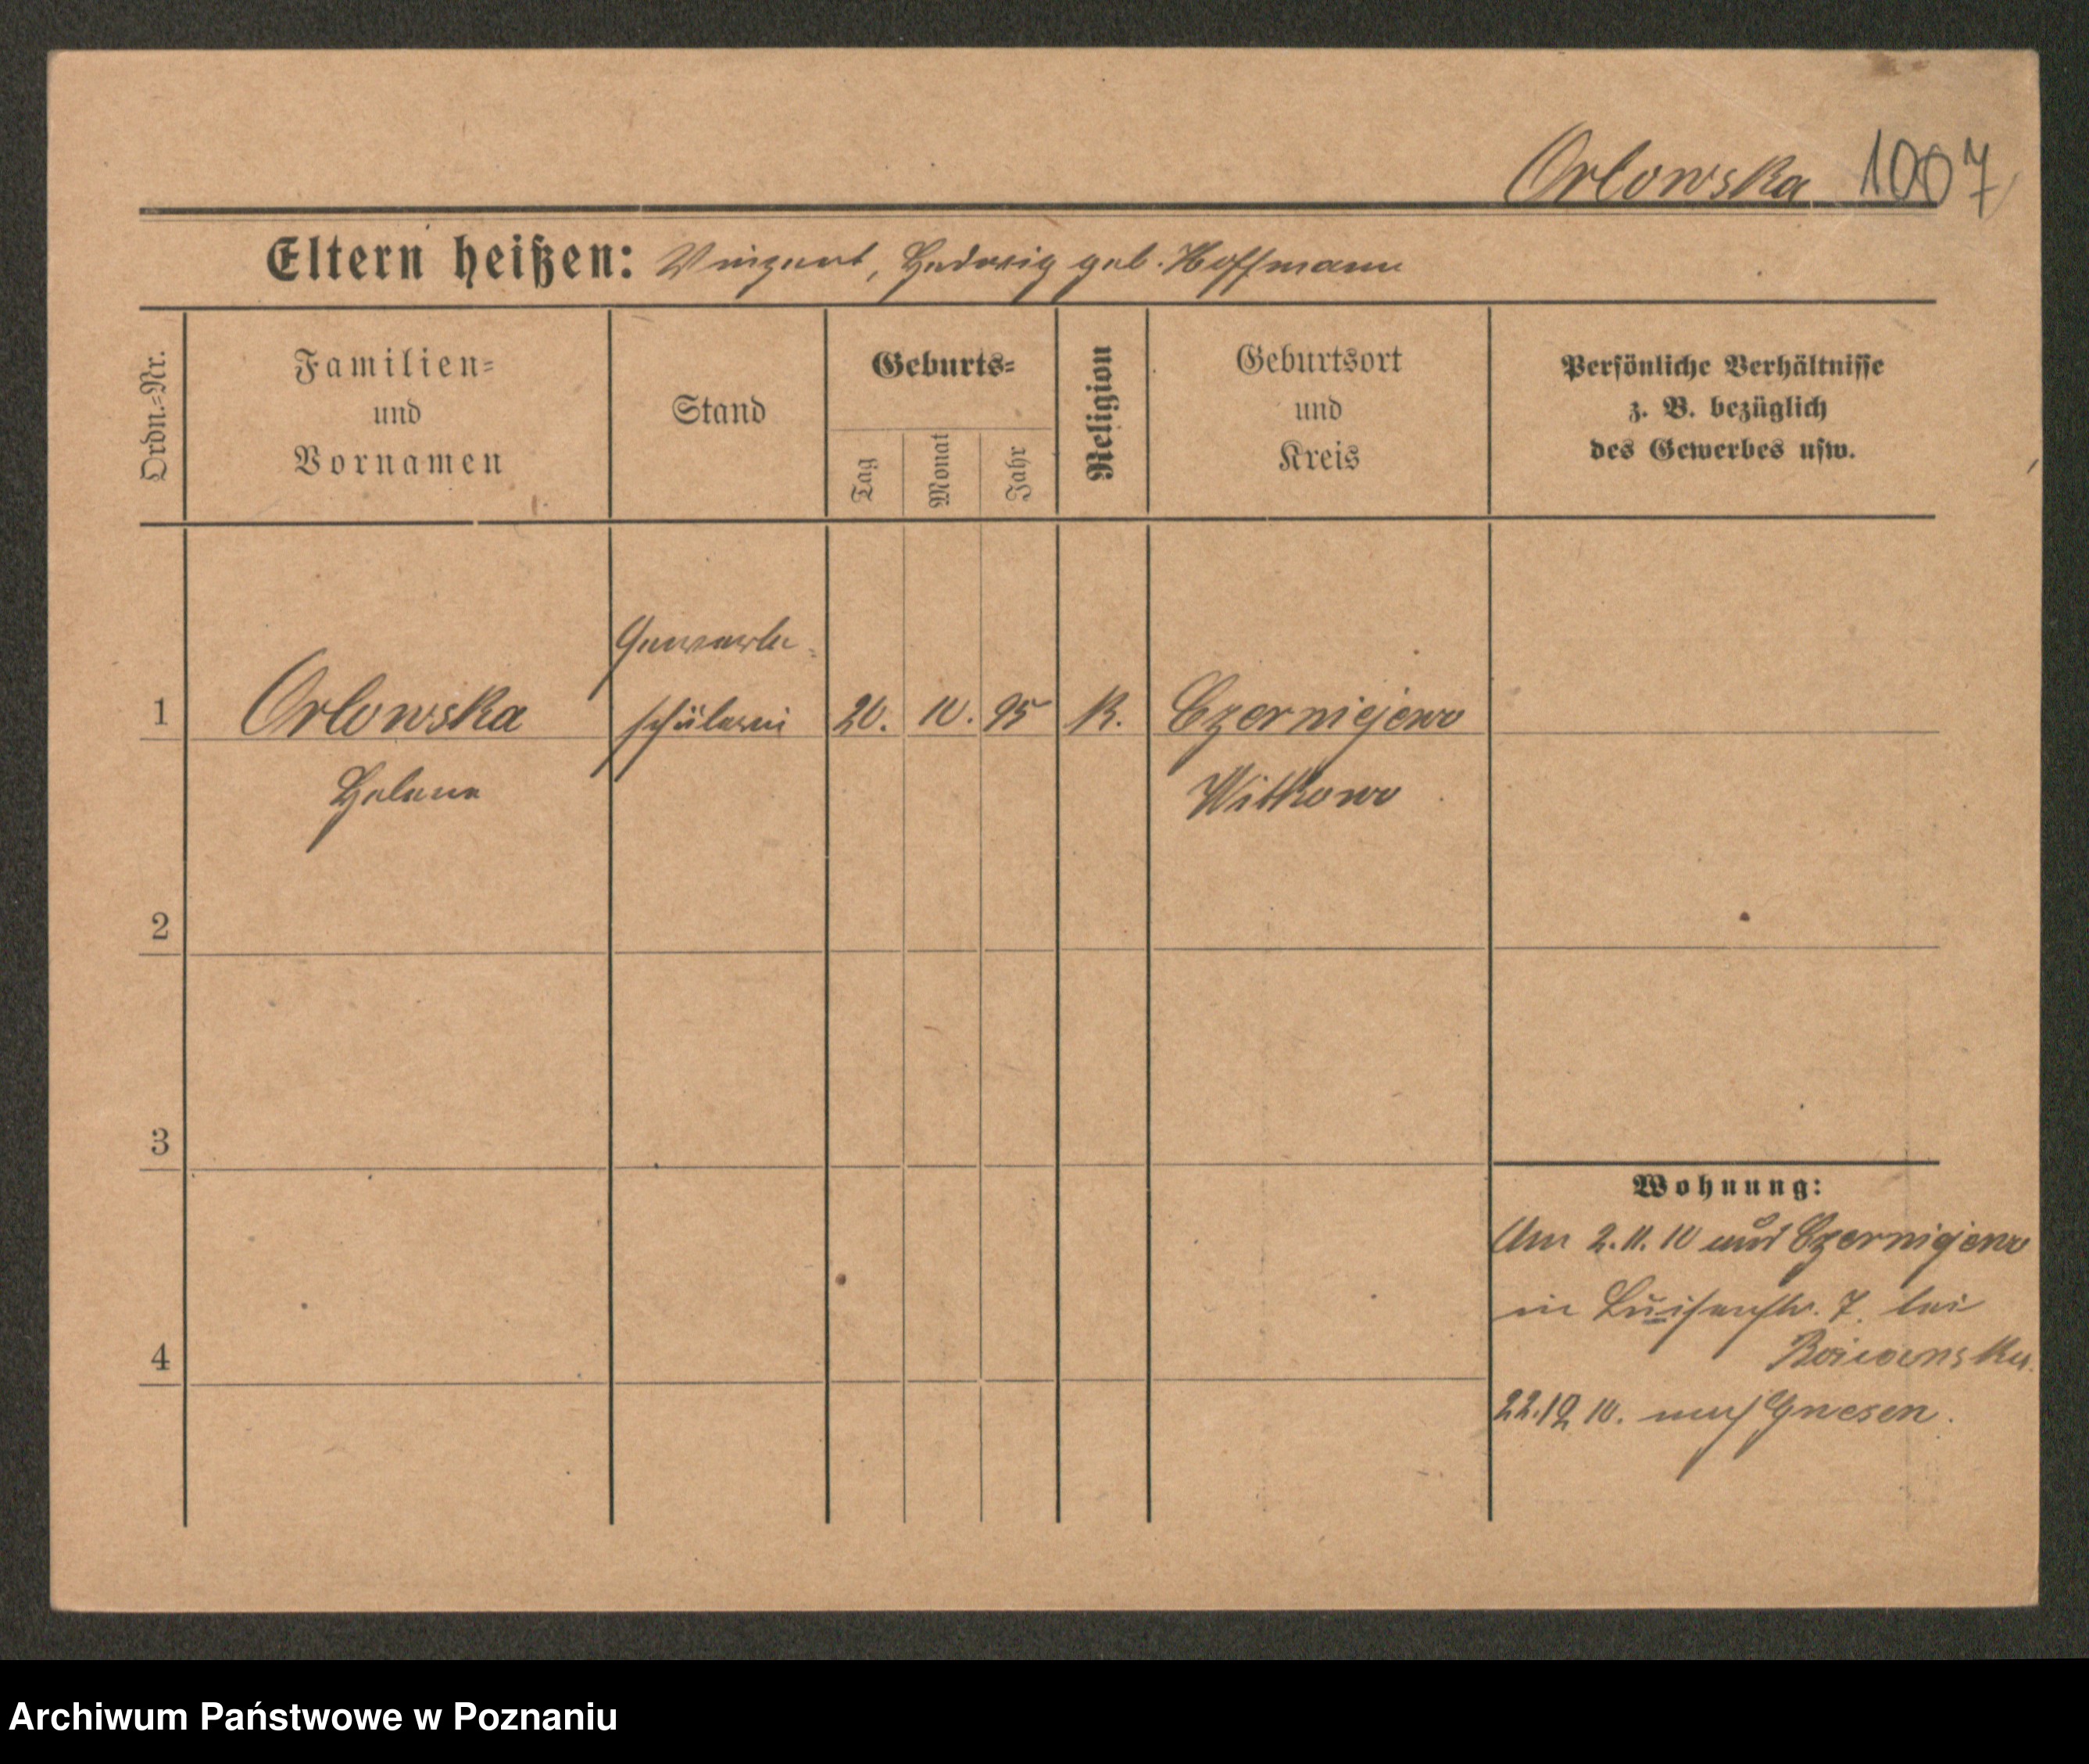 Orlowska 1007
Eltern heißen: Vinzent, Hedwig geb. Hoffmann
Ordn.-Nr.
Familien-
und
Vornamen
Stand
Geburts-
Tag
Monat
Jahr
Religion
Geburtsort
und
Kreis
Persönliche Verhältnisse
z. B. bezüglich
des Gewerbes usw.
Gewerbe-
1 Orlowska schülerin 20. 10. 95 K. Czerniejewo
Helene Witkowo
2
3
Wohnung:
Am 2.11.10 aus Czerniejewo
in Luisenstr. 7. bei
4
22.12.10. nach Gnesen.
Archiwum Państwowe w Poznaniu